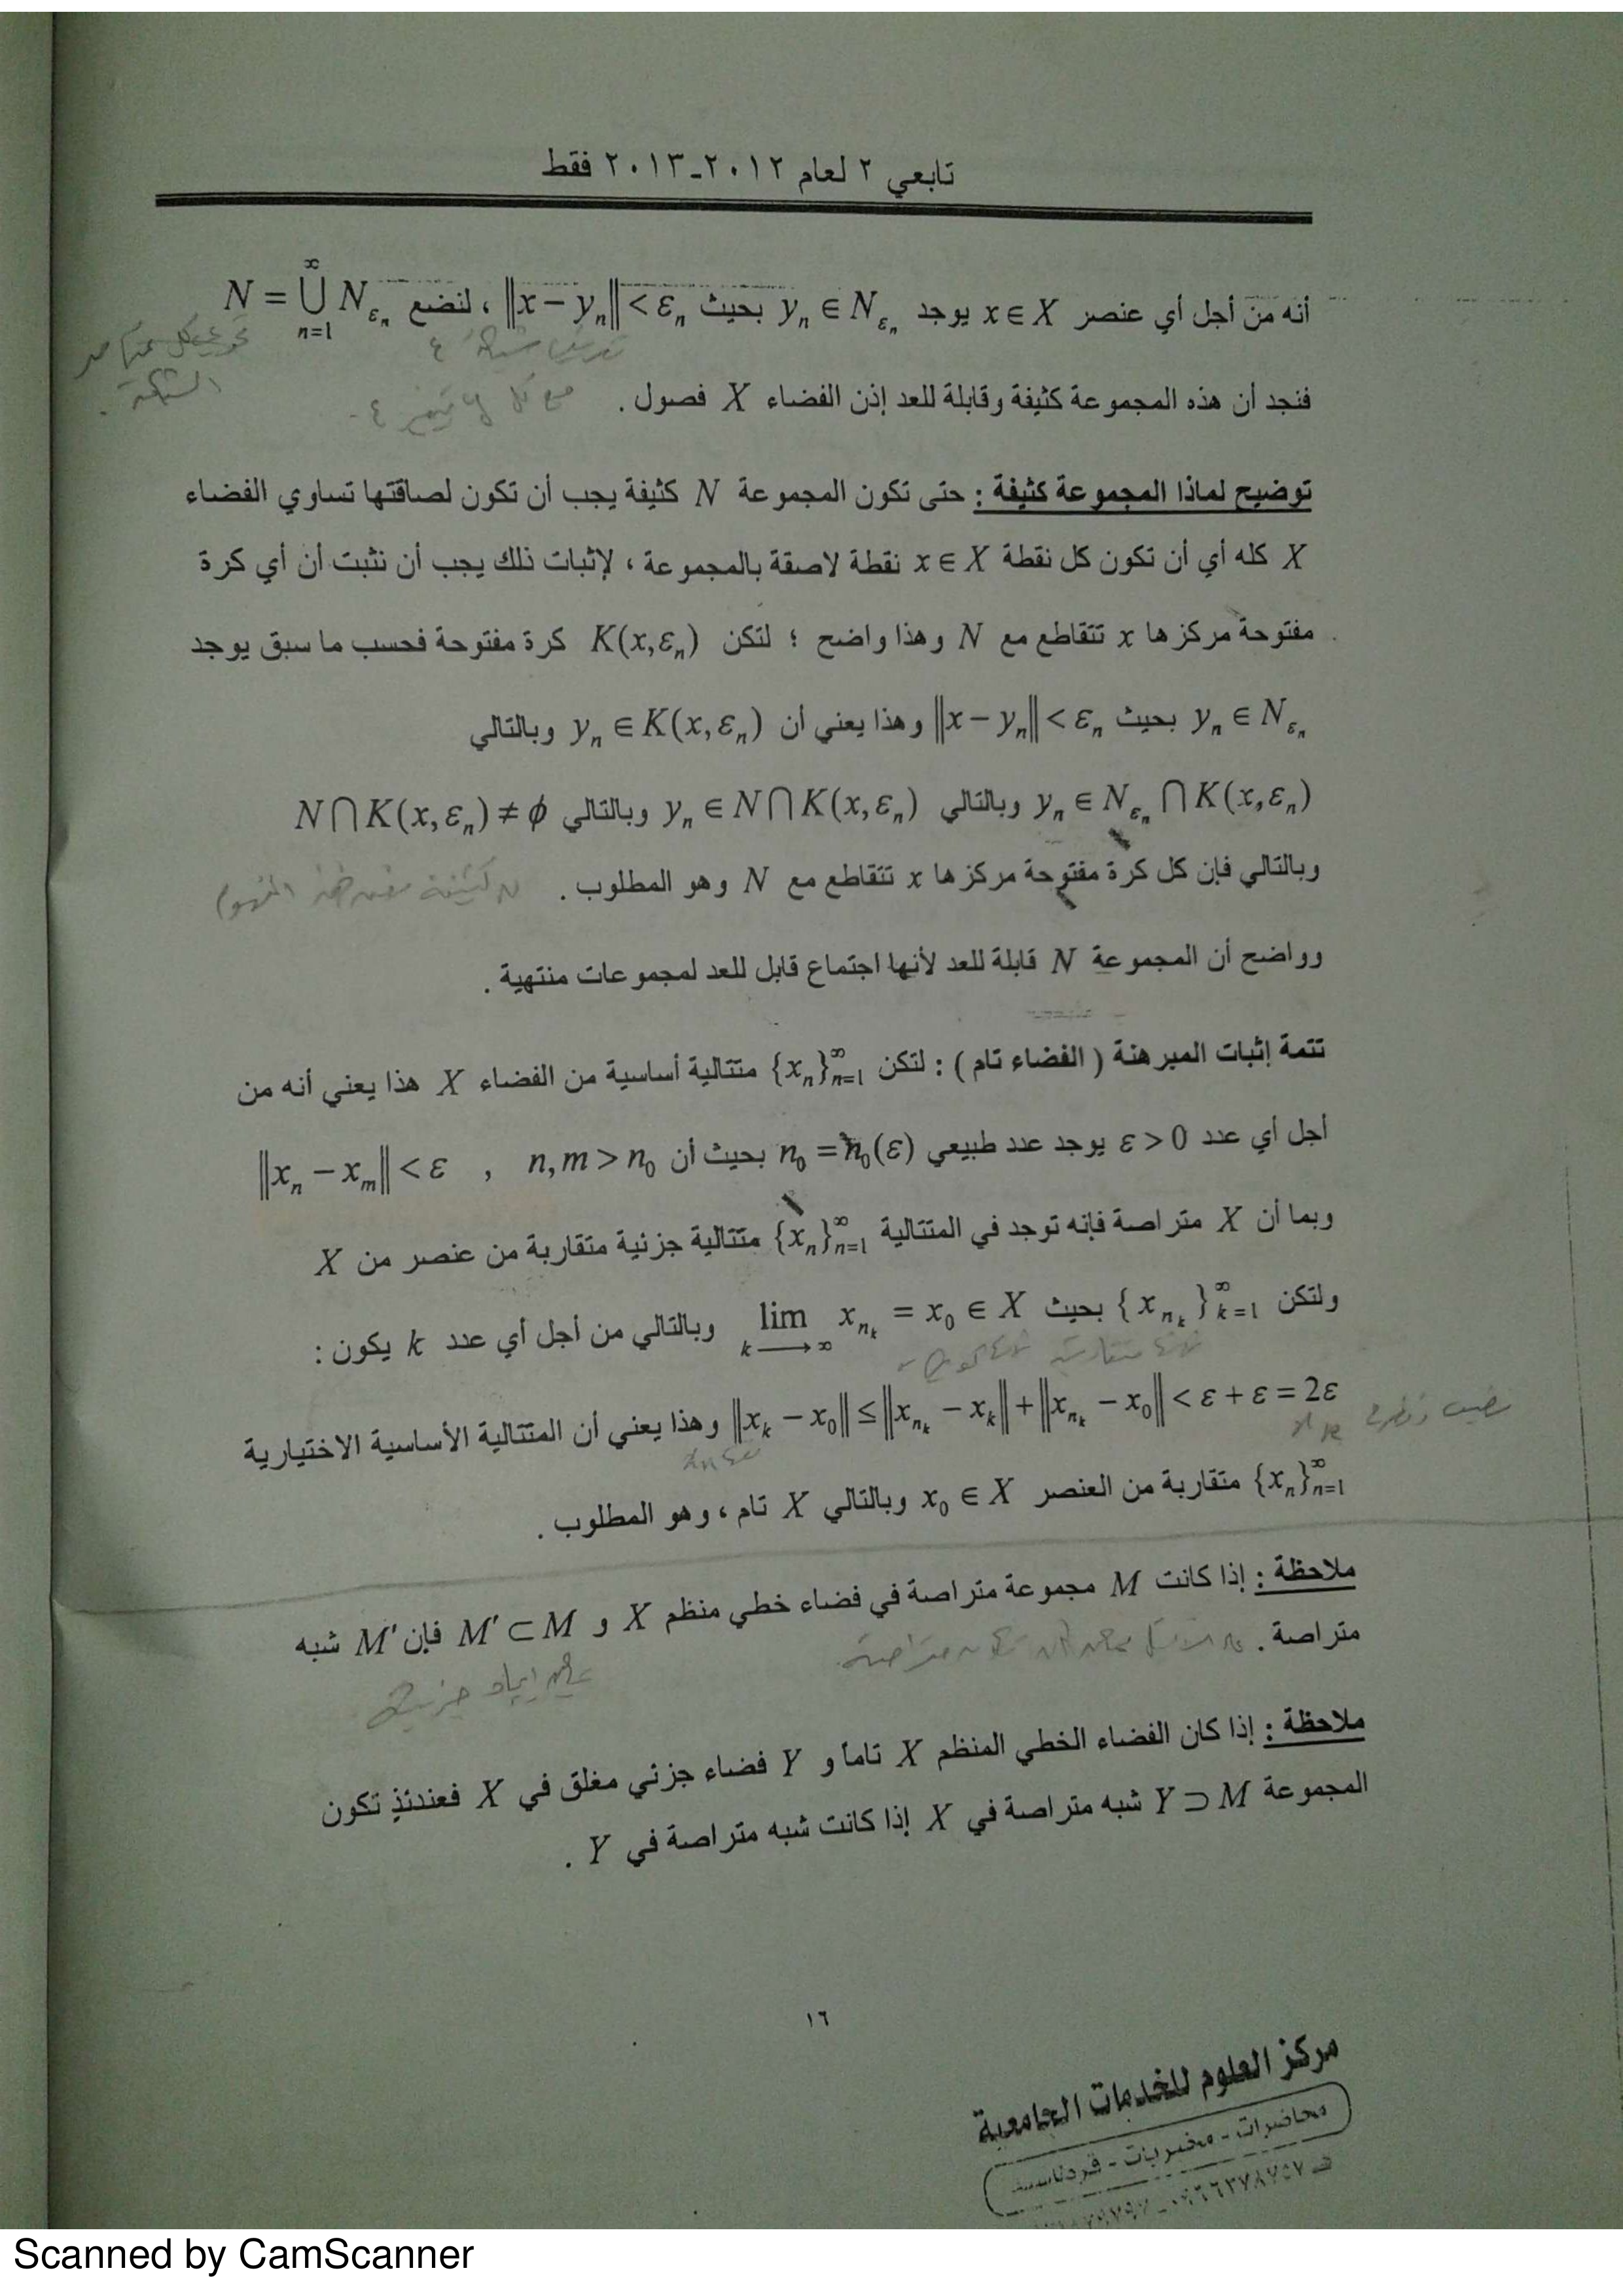 تابعي ٢ لعام ٢٠١٢-٢٠١٣ فقط
أنه من أجل أي عنصر x ∈ X يوجد yₙ ∈ N_{εₙ} بحيث ‖x − yₙ‖ < εₙ ، لنضع N = ⋃_{n=1}^{∞} N_{εₙ}
فنجد أن هذه المجموعة كثيفة وقابلة للعد إذن الفضاء X فصول .
توضيح لماذا المجموعة كثيفة : حتى تكون المجموعة N كثيفة يجب أن تكون لصاقتها تساوي الفضاء
X كله أي أن تكون كل نقطة x ∈ X نقطة لاصقة بالمجموعة ، لإثبات ذلك يجب أن نثبت أن أي كرة
مفتوحة مركزها x تتقاطع مع N وهذا واضح ؛ لتكن K(x,εₙ) كرة مفتوحة فحسب ما سبق يوجد
yₙ ∈ N_{εₙ} بحيث ‖x − yₙ‖ < εₙ وهذا يعني أن yₙ ∈ K(x,εₙ) وبالتالي
yₙ ∈ N_{εₙ} ⋂ K(x,εₙ) وبالتالي yₙ ∈ N ⋂ K(x,εₙ) وبالتالي N ⋂ K(x,εₙ) ≠ ϕ
وبالتالي فإن كل كرة مفتوحة مركزها x تتقاطع مع N وهو المطلوب .
وواضح أن المجموعة N قابلة للعد لأنها اجتماع قابل للعد لمجموعات منتهية .
تتمة إثبات المبرهنة ( الفضاء تام ) : لتكن {xₙ}_{n=1}^{∞} متتالية أساسية من الفضاء X هذا يعني أنه من
أجل أي عدد ε > 0 يوجد عدد طبيعي n₀ = n₀(ε) بحيث أن ‖xₙ − xₘ‖ < ε , n,m > n₀
وبما أن X متراصة فإنه توجد في المتتالية {xₙ}_{n=1}^{∞} متتالية جزئية متقاربة من عنصر من X
ولتكن {x_{n_k}}_{k=1}^{∞} بحيث lim_{k→∞} x_{n_k} = x₀ ∈ X وبالتالي من أجل أي عدد k يكون :
‖x_k − x₀‖ ≤ ‖x_{n_k} − x_k‖ + ‖x_{n_k} − x₀‖ < ε + ε = 2ε وهذا يعني أن المتتالية الأساسية الاختيارية
{xₙ}_{n=1}^{∞} متقاربة من العنصر x₀ ∈ X وبالتالي X تام ، وهو المطلوب .
ملاحظة : إذا كانت M مجموعة متراصة في فضاء خطي منظم X و M′ ⊂ M فإن M′ شبه
متراصة .
ملاحظة : إذا كان الفضاء الخطي المنظم X تاماً و Y فضاء جزئي مغلق في X فعندئذٍ تكون
المجموعة Y ⊃ M شبه متراصة في X إذا كانت شبه متراصة في Y .
١٦
مركز العلوم للخدمات الجامعية
محاضرات - مخبريات -
Scanned by CamScanner